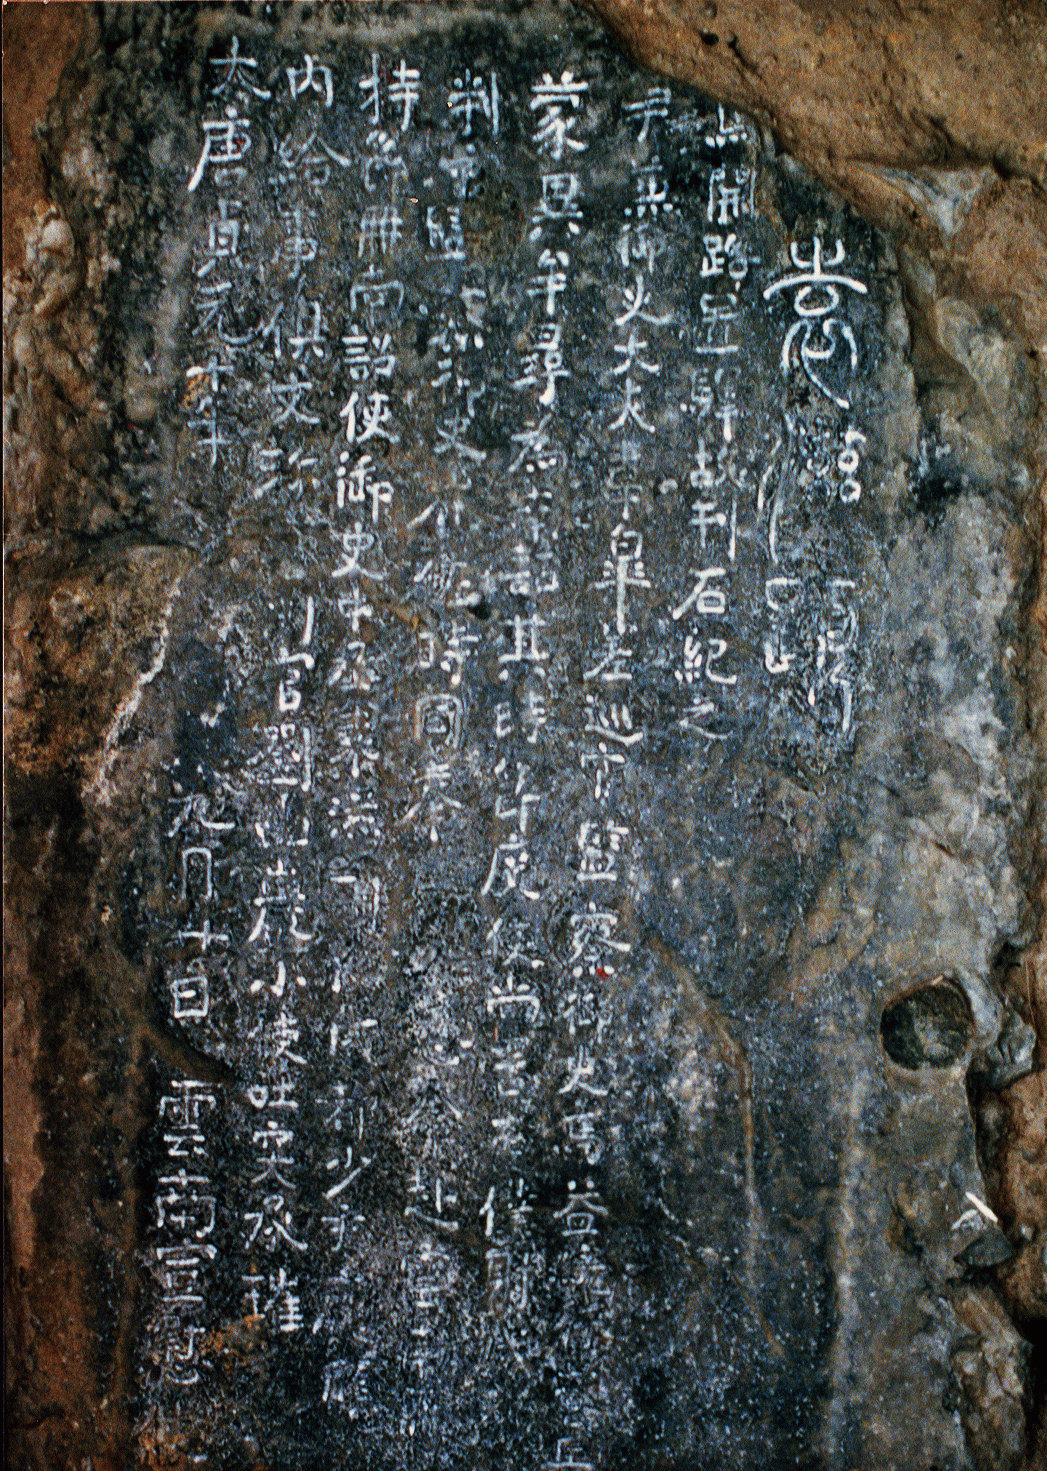 大唐貞元十年九月廿日雲南宣慰
内給事俱文珍判官劉幽巖小使吐突承璀
持節冊南詔使御史中丞袁滋副使成都少尹龐
判官監察御史崔佐時同奉恩命赴雲南
蒙異牟尋為南詔其時節度使尚書右僕射成
尹兼御史大夫韋皋差巡官監察御史馬益統行營兵
馬開路置驛故刊石紀之
袁滋題